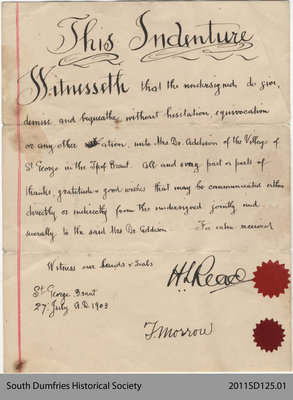 This Indenture
Witnesseth that the undersigned, do give
demise and bequeathe without hesitation, equivocation
or any other ation, unto Mrs Dr. Addison of the Village of
St George in the Tp of Brant. All and every part or parts of
thanks, gratitude & good wishes that may be communicated either
directly or indirectly from the undersigned jointly and
severally to the said Mrs Dr. Addison. For value received
Witness our hands & seals
St. George, Brant
27. July A.D. 1903
H.L. Read
J. Morrow
South Dumfries Historical Society
2011SD125.01